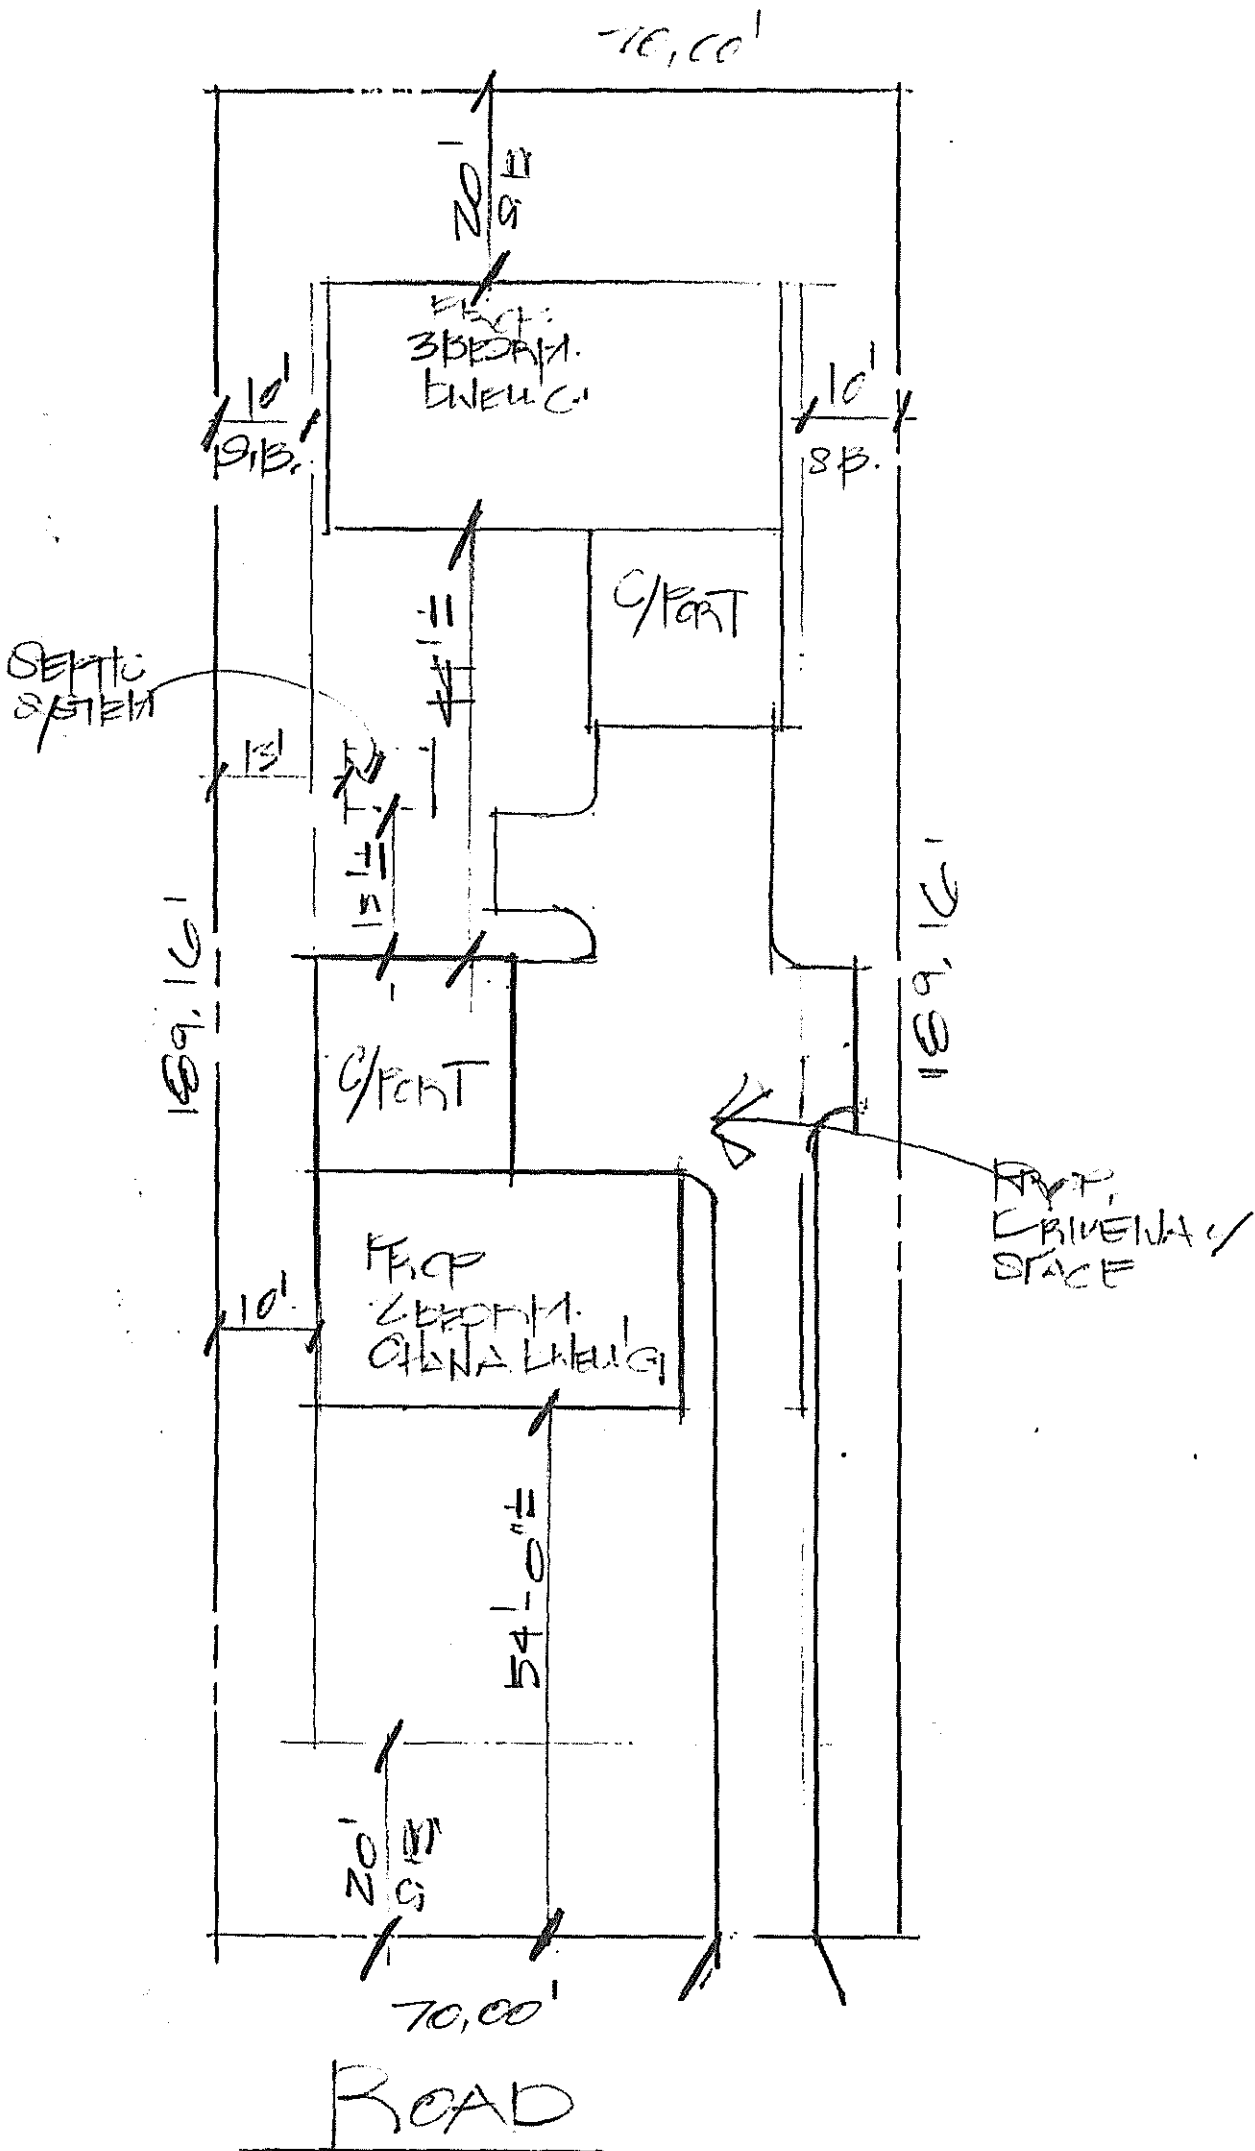 70.00'
20'
S.B.
PROP.
3 BEDRM.
DWELL'G.
10'
S.B.
10'
S.B.
C/PORT
44'±
SEPTIC
SYSTEM
13'
15'±
189.16'
189.16'
C/PORT
PROP.
DRIVEWAY
SPACE
PROP
2 BEDRM.
OHANA DWELL'G
10'
54'-0"±
20'
S.B.
70.00'
ROAD